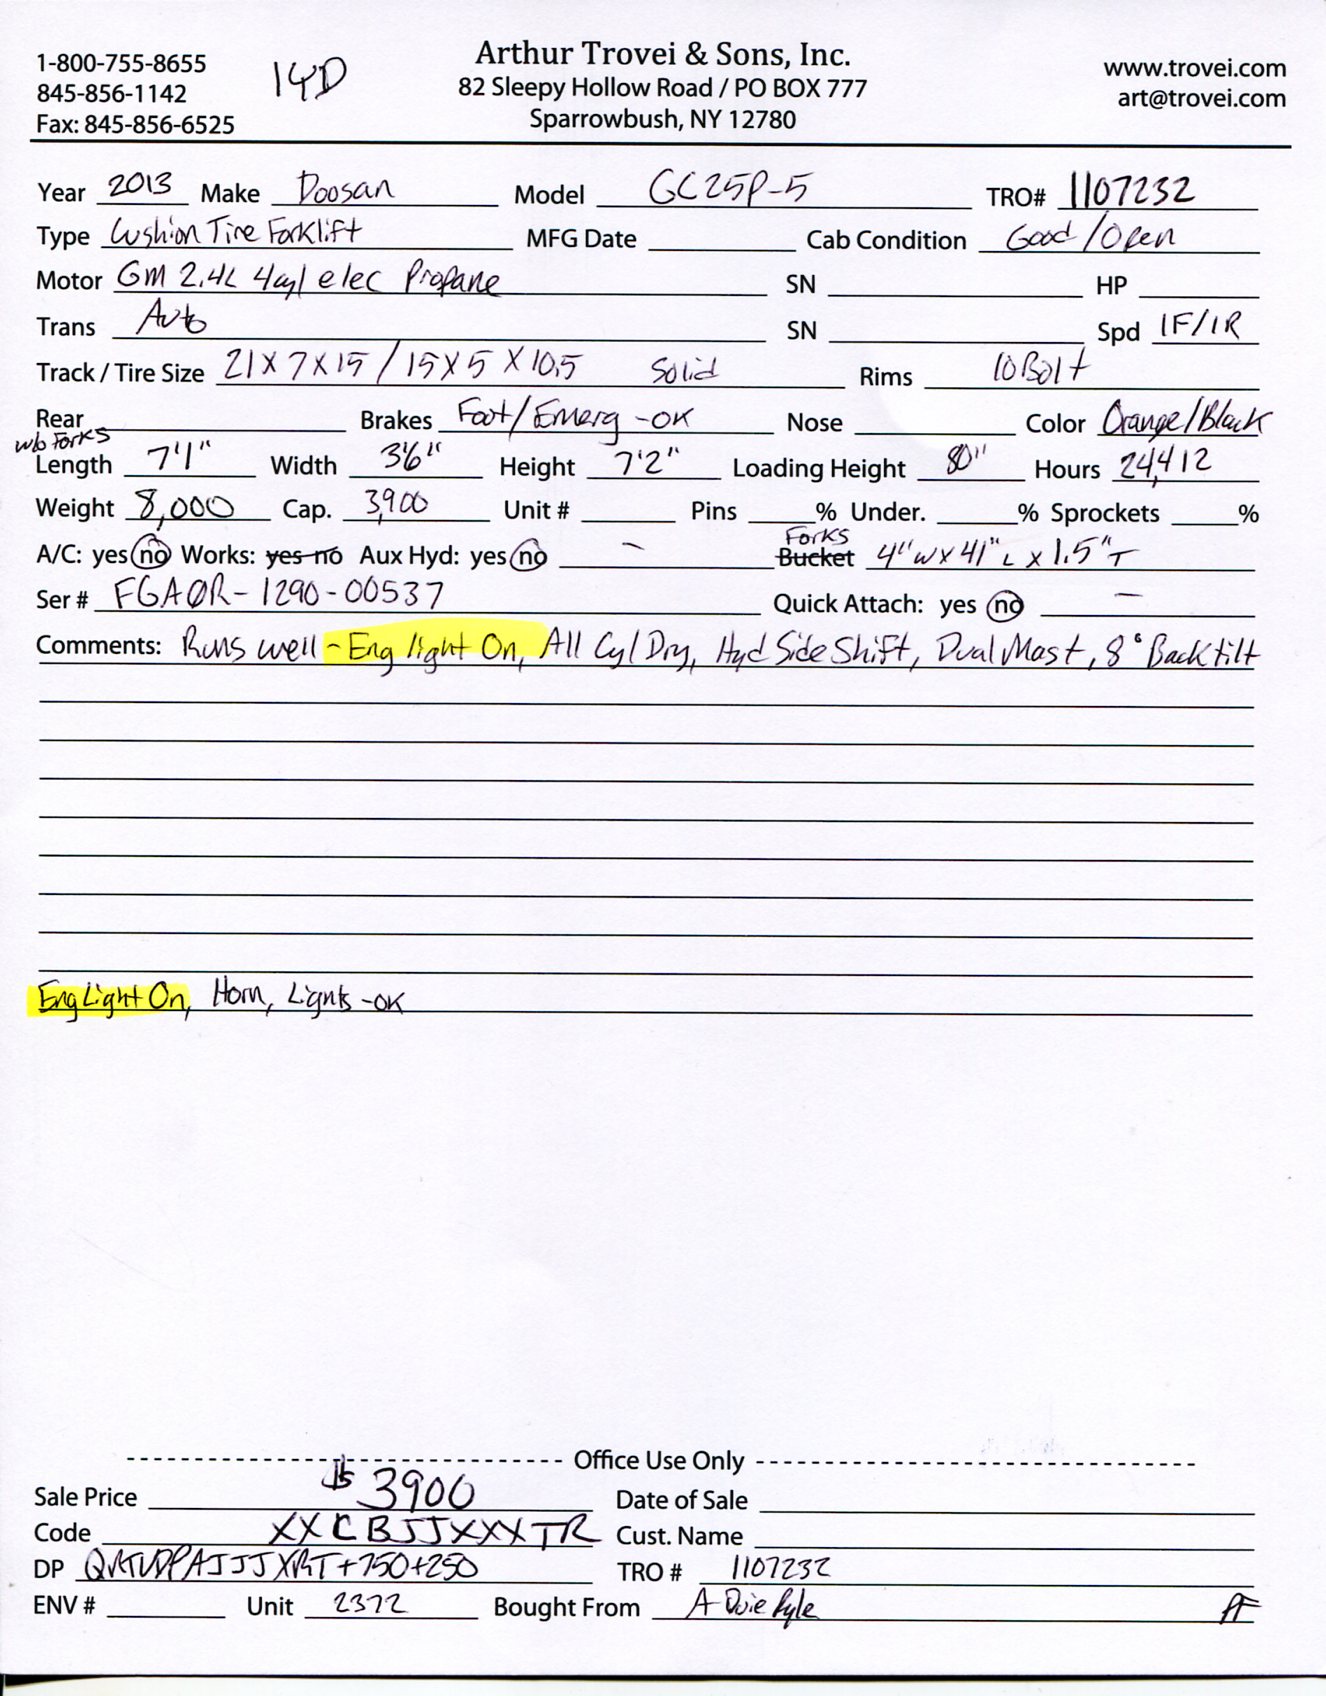 1-800-755-8655
845-856-1142
Fax: 845-856-6525
14D
Arthur Trovei & Sons, Inc.
82 Sleepy Hollow Road / PO BOX 777
Sparrowbush, NY 12780
www.trovei.com
art@trovei.com
Year 2013 Make Doosan Model GC25P-5 TRO# 1107232
Type Cushion Tire Forklift MFG Date Cab Condition Good/Open
Motor GM 2.4L 4cyl elec Propane SN HP
Trans Auto SN Spd 1F/1R
Track / Tire Size 21X7X15 / 15X5X10.5 Solid Rims 10 Bolt
Rear Brakes Foot/Emerg -OK Nose Color Orange/Black
w/o Forks
Length 7'1" Width 3'6" Height 7'2" Loading Height 80" Hours 24,412
Weight 8,000 Cap. 3,900 Unit # Pins % Under. % Sprockets %
Forks
A/C: yes no Works: yes no Aux Hyd: yes no - Bucket 4"W X 41"L X 1.5"T
Ser # FGA0R-1290-00537 Quick Attach: yes no -
Comments: Runs well - Eng light On, All Cyl Dry, Hyd Side Shift, Dual Mast, 8° Back tilt
Eng Light On, Horn, Lights -OK
Office Use Only
Sale Price $3900 Date of Sale
Code XXCBJJXXXTR Cust. Name
DP +750+250 TRO # 1107232
ENV # Unit 2372 Bought From A Duie Pyle PF